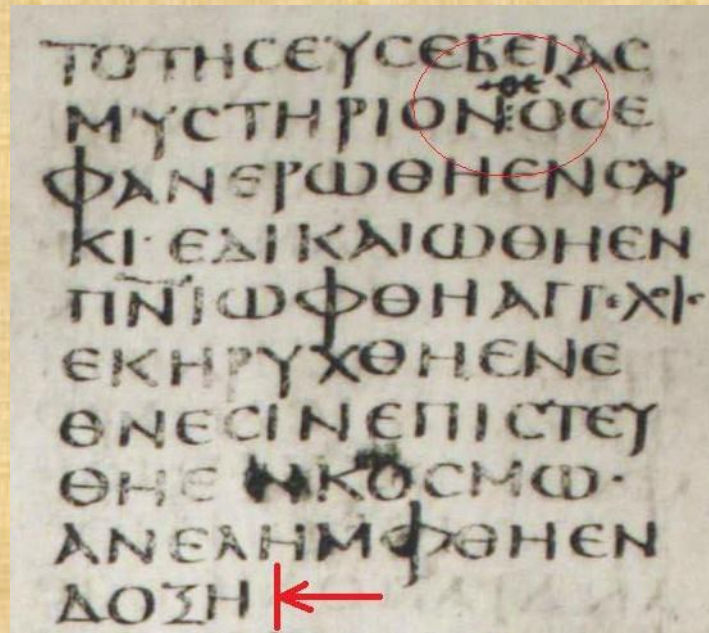 ΤΟΤΗϹΕΥϹΕΒΕΙΑϹ
θε
ΜΥϹΤΗΡΙΟΝΟϹΕ
ΦΑΝΕΡΩΘΗΕΝϹΑΡ
ΚΙ·ΕΔΙΚΑΙΩΘΗΕΝ
ΠΝ̅Ι̅ΩΦΘΗΑΓΓ·ΧΙ·
ΕΚΗΡΥΧΘΗΕΝΕ
ΘΝΕϹΙΝΕΠΙϹΤΕΥ
ΘΗΕΝΚΟϹΜΩ·
ΑΝΕΛΗΜΦΘΗΕΝ
ΔΟΞΗ